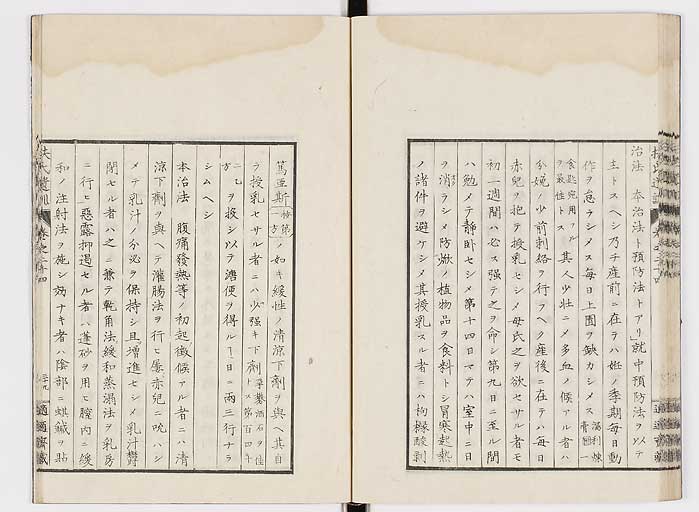 治法 本治法ト預防法トアリ就中預防法ヲ以テ
主トスヘシ乃チ産前ニ在テハ妊ノ季期毎日動
作ヲ怠ラシメス毎日上圊ヲ缺カシメス
食匙宛用フル
ヲ最佳トス
其人少壮ニメ多血ノ候アル者ハ
分娩ノ少前刺絡ヲ行ラヘク産後ニ在テハ毎日
赤兒ヲ抱テ授乳セシメ母氏之ヲ欲セサル者モ
初一週間ハ必ス强テ之ヲ命シ第九日ニ至ル間
ハ勉メテ静卧セシメ第十四日マテハ室中ニ日
ヲ消ラシメ防㷔ノ植物品ヲ食料トシ冒寒起熱
ノ諸件ヲ避ケシメ其授乳スル者ニハ枸櫞酸剥
篤亜斯
ノ如キ緩性ノ清涼下劑ヲ與ヘ其自
ラ授乳セサル者ニハ少强キ下劑
ヲ投シ以テ溏便ヲ得ルヿ日ニ両三行ナラ
シムヘシ
本治法 腹痛發熱等ノ初起徴候アル者ニハ清
涼下劑ヲ與ヘテ灌腸法ヲ行ヒ屡赤兒ニ吮ハシ
メテ乳汁ノ分泌ヲ保持シ且増進セシメ乳汁欝
閉セル者ハ之ニ兼テ乾角法緩和蒸溻法ヲ乳房
ニ行ヒ惡露抑遏セル者ハ蓬砂ヲ用ヒ膣内ニ緩
和ノ注射法ヲ施シ効ナキ者ハ陰部ニ蜞鍼ヲ貼
扶氏遺訓 卷之二十四
適適齋藏